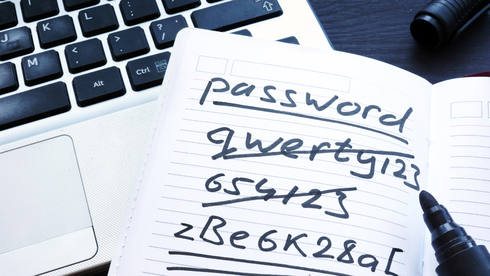 J K L
M
Alt Ctrl
shift
password
qwerty123
654123
zBe6K28a[